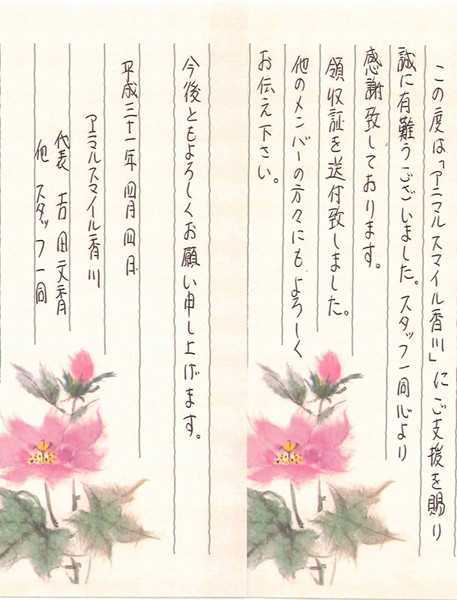 この度は「アニマルスマイル香川」にご支援を賜り
誠に有難うございました。スタッフ一同心より
感謝致しております。
領収証を送付致しました。
他のメンバーの方々にも、よろしく
お伝え下さい。
今後ともよろしくお願い申し上げます。
平成三十一年 四月 四日
アニマルスマイル香川
代表 吉田文香
他 スタッフ一同